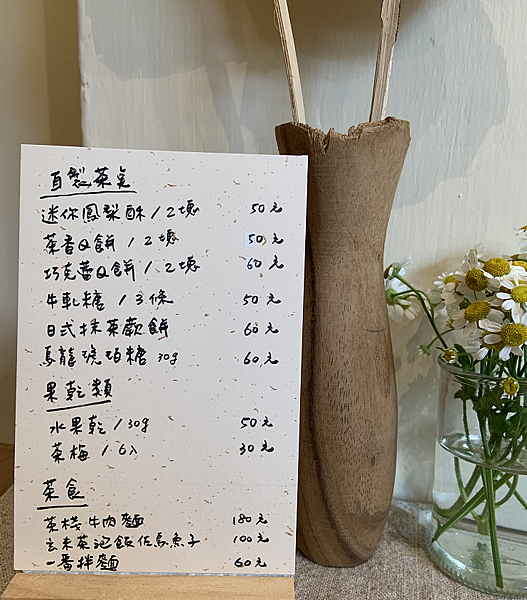 自製茶點
迷你鳳梨酥 / 2塊 50元
茶香Q餅 / 2塊 50元
巧克蕾Q餅 / 2塊 60元
牛軋糖 / 3條 50元
日式抹茶歡餅 60元
烏龍琥珀糖 30g 60元
果乾類
水果乾 / 30g 50元
茶梅 / 6入 30元
茶食
茶棧牛肉麵 180元
玄米茶泡飯佐烏魚子 100元
一番拌麵 60元